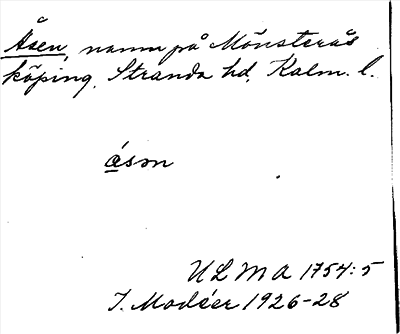 Åsen, namn på Mönsterås
köping, Stranda hd, Kalm. l.
åsən
ULMA 1754:5
I. Modéer 1926-28